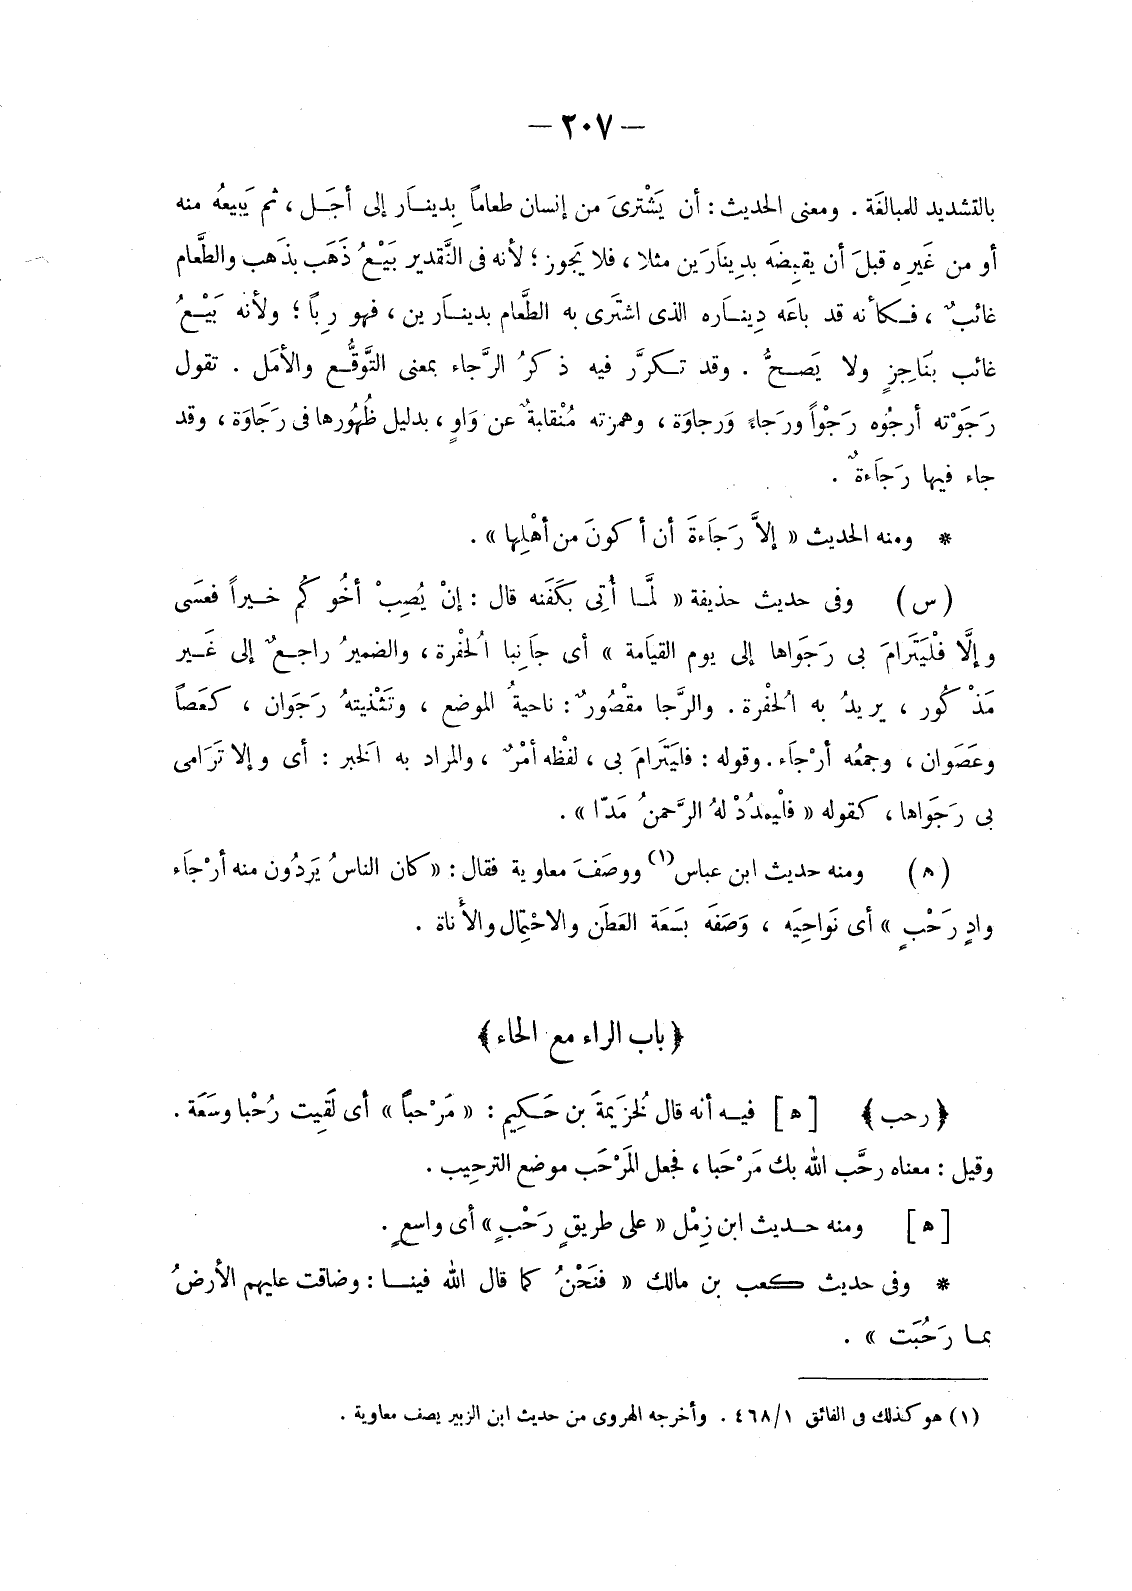 — ٢٠٧ —
بالتشديد للمبالغَة . ومعنى الحديث : أن يَشْترىَ من إنسان طعاماً بِدينَار إلى أجَل ، ثم يَبِيعُه منه
أو من غَيرِه قبلَ أن يقبِضَه بدِينَارَين مثلا ، فلا يَجوز ؛ لأنه فى التَّقدير بَيْعُ ذَهَب بذهب والطَّعام
غائبٌ ، فكأنه قد باعَه دِينَاره الذى اشتَرى به الطَّعام بدينَارين ، فهو رِباً ؛ ولأنه بَيْعُ
غائب بنَاجِزٍ ولا يَصحُّ . وقد تكرَّر فيه ذكرُ الرَّجاء بمعنى التَّوقُّع والأمَل . تقول
رَجَوْته أرجُوه رَجْواً ورَجاءً وَرجاوَة ، وهمزته مُنْقلبةٌ عن وَاوٍ ، بدليل ظُهُورها فى رَجَاوَة ، وقد
جاء فيها رَجَاءةٌ .
* ومنه الحديث « إلاَّ رَجَاءةَ أن أكونَ من أهْلِها » .
( س ) وفى حديث حذيفة « لمَّا أُتِى بكَفَنه قال : إنْ يُصِبْ أخُوكُم خيراً فعسَى
وإلَّا فلْيَتَرامَ بى رَجَواها إلى يوم القيَامة » أى جَانِبا الُحفْرة ، والضميرُ راجعٌ إلى غَير
مَذْكُور ، يريدُ به الُحفْرة . والرَّجا مقْصُورٌ : ناحيةُ الموضع ، وتَثْنيتهُ رَجَوان ، كعَصاً
وعَصَوان ، وجمعُه أرْجَاء . وقوله : فليَتَرامَ بى ، لفْظه أمْرٌ ، والمراد به الَخبر : أى وإلا تَرَامى
بى رَجَواها ، كقوله « فلْيمدُدْ لهُ الرَّحمنُ مَدّا » .
( ه ) ومنه حديث ابن عباس (١) ووصَفَ معاوية فقال : « كان الناسُ يَرِدُون منه أرْجَاء
وادٍ رَحْبٍ » أى نَواحِيَه ، وَصَفَه بسَعَة العَطَن والاحْتِمال والأَناة .
﴿ باب الراء مع الحاء ﴾
﴿ رحب ﴾ [ ه ] فيه أنه قال لُخزَيمةَ بن حَكِيم : « مَرْحباً » أى لَقِيت رُحْبا وسَعَة .
وقيل : معناه رحَّب الله بك مَرْحَبا ، فجعل المَرْحَب موضع الترحِيب .
[ ه ] ومنه حديث ابن زِمْل « على طريقٍ رَحْبٍ » أى واسعٍ .
* وفى حديث كعب بن مالك « فنَحْنُ كما قال الله فينا : وضاقت عليهم الأرضُ
بما رَحُبَت » .
(١) هو كذلك فى الفائق ٤٦٨/١ . وأخرجه الهروى من حديث ابن الزبير يصف معاوية .